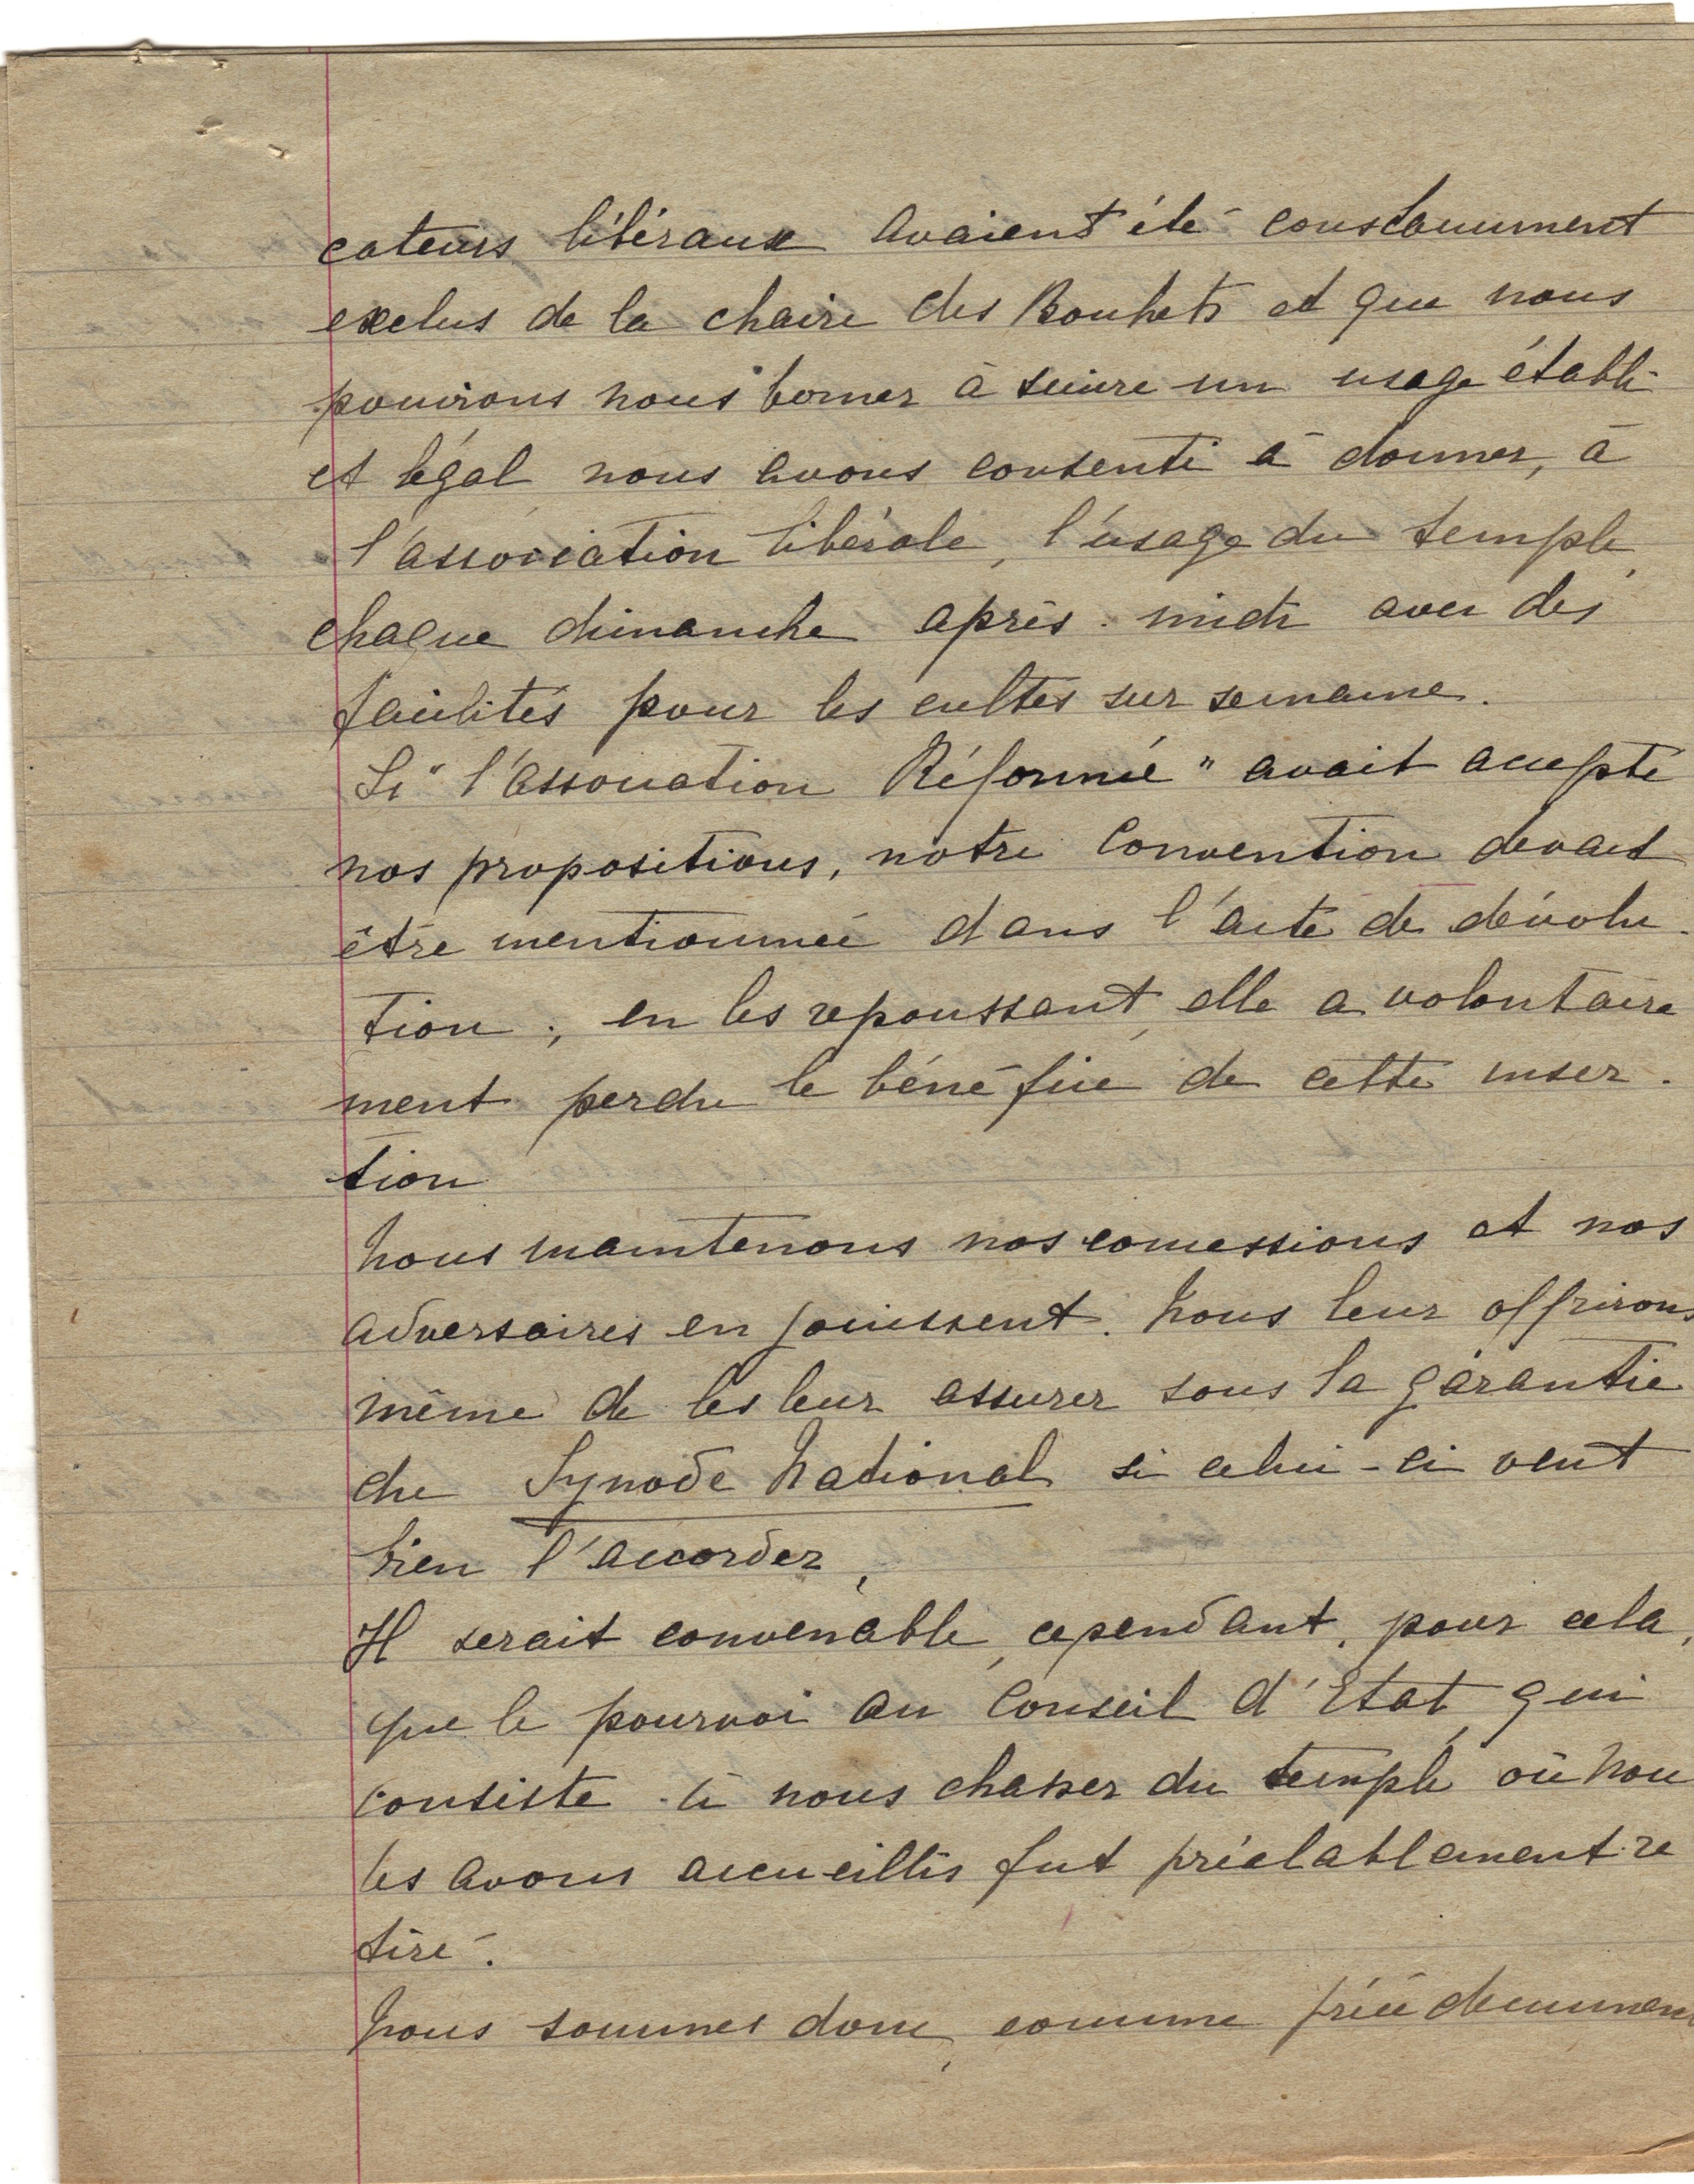 cateurs libéraux avaient été constamment
exclus de la chaire des Bouhets et que nous
pouvions nous borner à suivre un usage établi
et légal nous avons consenti à donner, à
l'association libérale, l'usage du temple,
chaque dimanche après-midi avec des
facilités pour les cultes sur semaine.
Si "l'association Réformée" avait accepté
nos propositions, notre Convention devait
être mentionnée dans l'acte de dévolu-
tion ; en les repoussant, elle a volontaire
ment perdu le bénéfice de cette inser-
tion
Nous maintenons nos concessions et nos
adversaires en jouissent. Nous leur offrirons
même de les leur assurer sous la garantie
du Synode National si celui-ci veut
bien l'accorder,
Il serait convenable, cependant, pour cela,
que le pourvoi au Conseil d'Etat, qui
consiste à nous chasser du temple où nou
les avons accueillis fut préalablement re
tiré.
Nous sommes donc, comme précédemmen